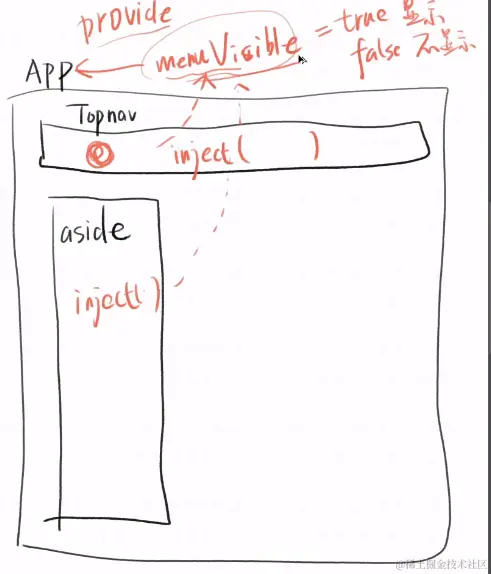 provide
menuVisible = true 显示
false 不显示
APP
Topnav
inject( )
aside
inject( )
@稀土掘金技术社区